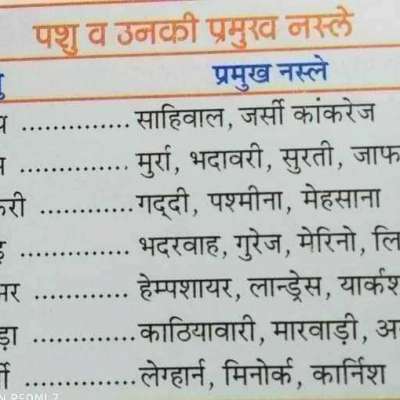 पशु व उनकी प्रमुख नस्ले
प्रमुख नस्ले
.............. साहिवाल, जर्सी कांकरेज
.............. मुर्रा, भदावरी, सुरती, जाफ
.............गद्दी, पश्मीना, मेहसाना
.............. भदरवाह, गुरेज, मेरिनो, लि
............ हेम्पशायर, लान्ड्रेस, यार्कश
.............काठियावारी, मारवाड़ी, अ
..............लेग्हार्न, मिनोर्क, कार्निश